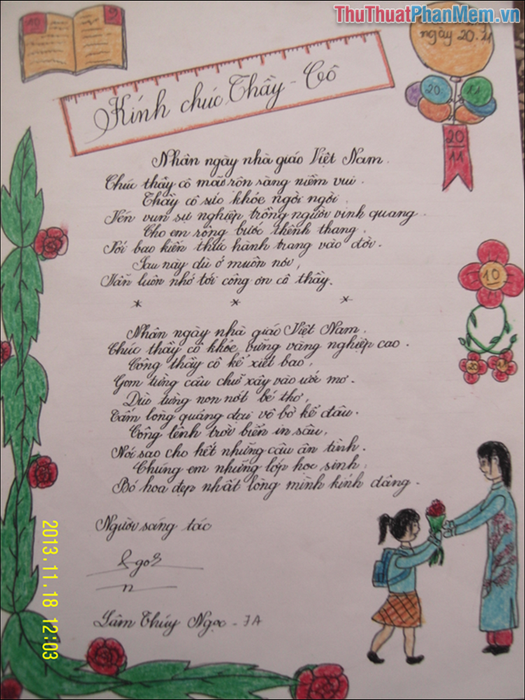 ThuThuatPhanMem.vn
10
10
ngày 20.11
20
11
20
11
Kính chúc Thầy - Cô
Nhân ngày nhà giáo Việt Nam.
Chúc thầy cô mãi rộn ràng niềm vui.
Thầy cô sức khỏe ngời ngời,
Vốn vun sự nghiệp trồng người vinh quang.
Cho em rộng bước thênh thang,
Với bao kiến thức hành trang vào đời.
Sau này dù ở muôn nơi,
Vẫn luôn nhớ tới công ơn cô thầy.
* * *
Nhân ngày nhà giáo Việt Nam.
Chúc thầy cô khỏe, vững vàng nghiệp cao.
Công thầy cô kể xiết bao,
Gom từng câu chữ xây vào ước mơ.
Dìu từng non nớt bé thơ,
Tấm lòng quảng đại vô bờ kể đâu.
Công lênh trời biển in sâu,
Nói sao cho hết những câu ân tình.
Chúng em những lớp học sinh,
Bó hoa đẹp nhất lòng mình kính dâng.
10
20
11
Người sáng tác
Ngọc
Lâm Thúy Ngọc - 7A
2013.11.18 12:03